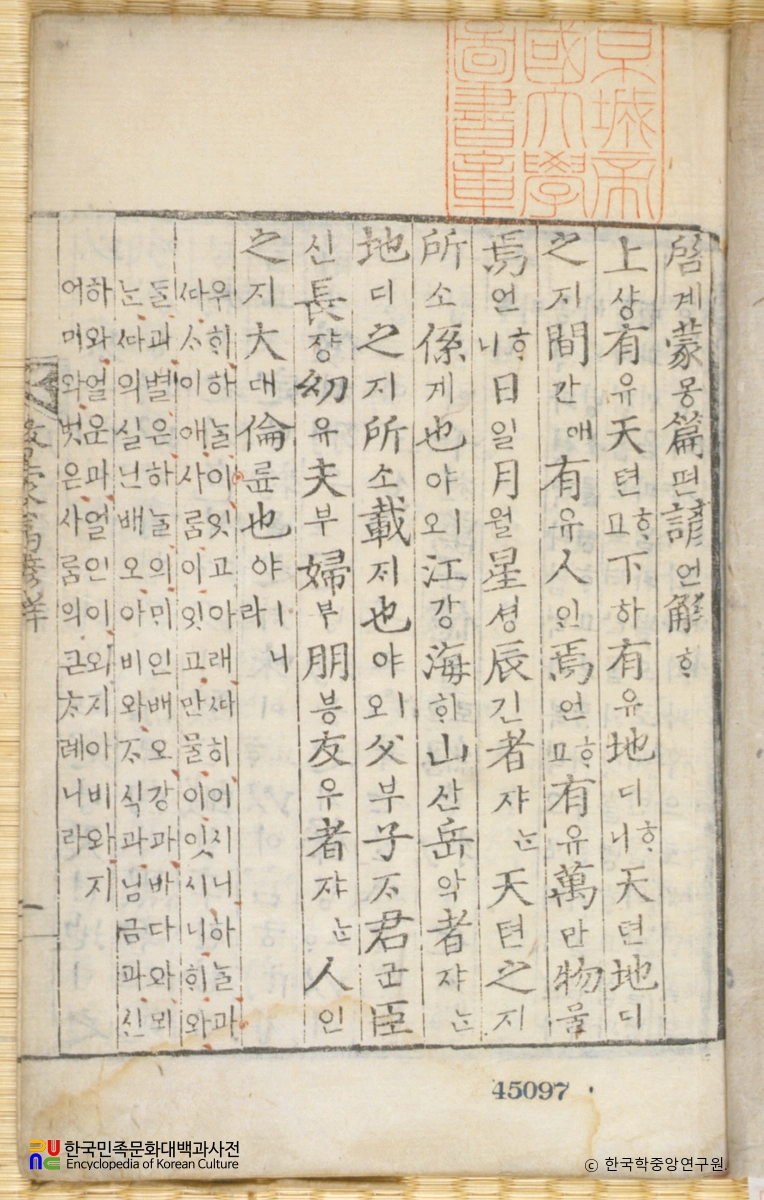 京城帝
國大學
圖書章
啓계蒙몽篇편諺언解ᄒᆡ
上샹有유天텬ᄒᆞ고下하有유地디ᄒᆞ니天텬地디
之지間간애有유人인焉언ᄒᆞ고有유萬만物물
焉언ᄒᆞ니日일月월星셩辰긴者쟈ᄂᆞᆫ天텬之지
所소係계也야ㅣ오江강海ᄒᆡ山산岳악者쟈ᄂᆞᆫ
地디之지所소載ᄌᆡ也야ㅣ오父부子ᄌᆞ君군臣
신長쟝幼유夫부婦부朋븡友우者쟈ᄂᆞᆫ人인
之지大대倫륜也야ㅣ니라
우희하ᄂᆞᆯ이잇고아래ᄯᅡ히이시니하ᄂᆞᆯ과
ᄯᅡᄉᆞ이애사ᄅᆞᆷ이잇고만물이잇시니ᄒᆡ와
ᄃᆞᆯ과별은하ᄂᆞᆯ의ᄆᆡ인배오강과바다와뫼
ᄂᆞᆫᄯᅡ의실닌배오아비와ᄌᆞ식과님금과신
하와얼운과얼인이와지아비와지
어머와벗은사ᄅᆞᆷ의큰ᄎᆞ례니라
一
45097
한국민족문화대백과사전
Encyclopedia of Korean Culture
ⓒ 한국학중앙연구원